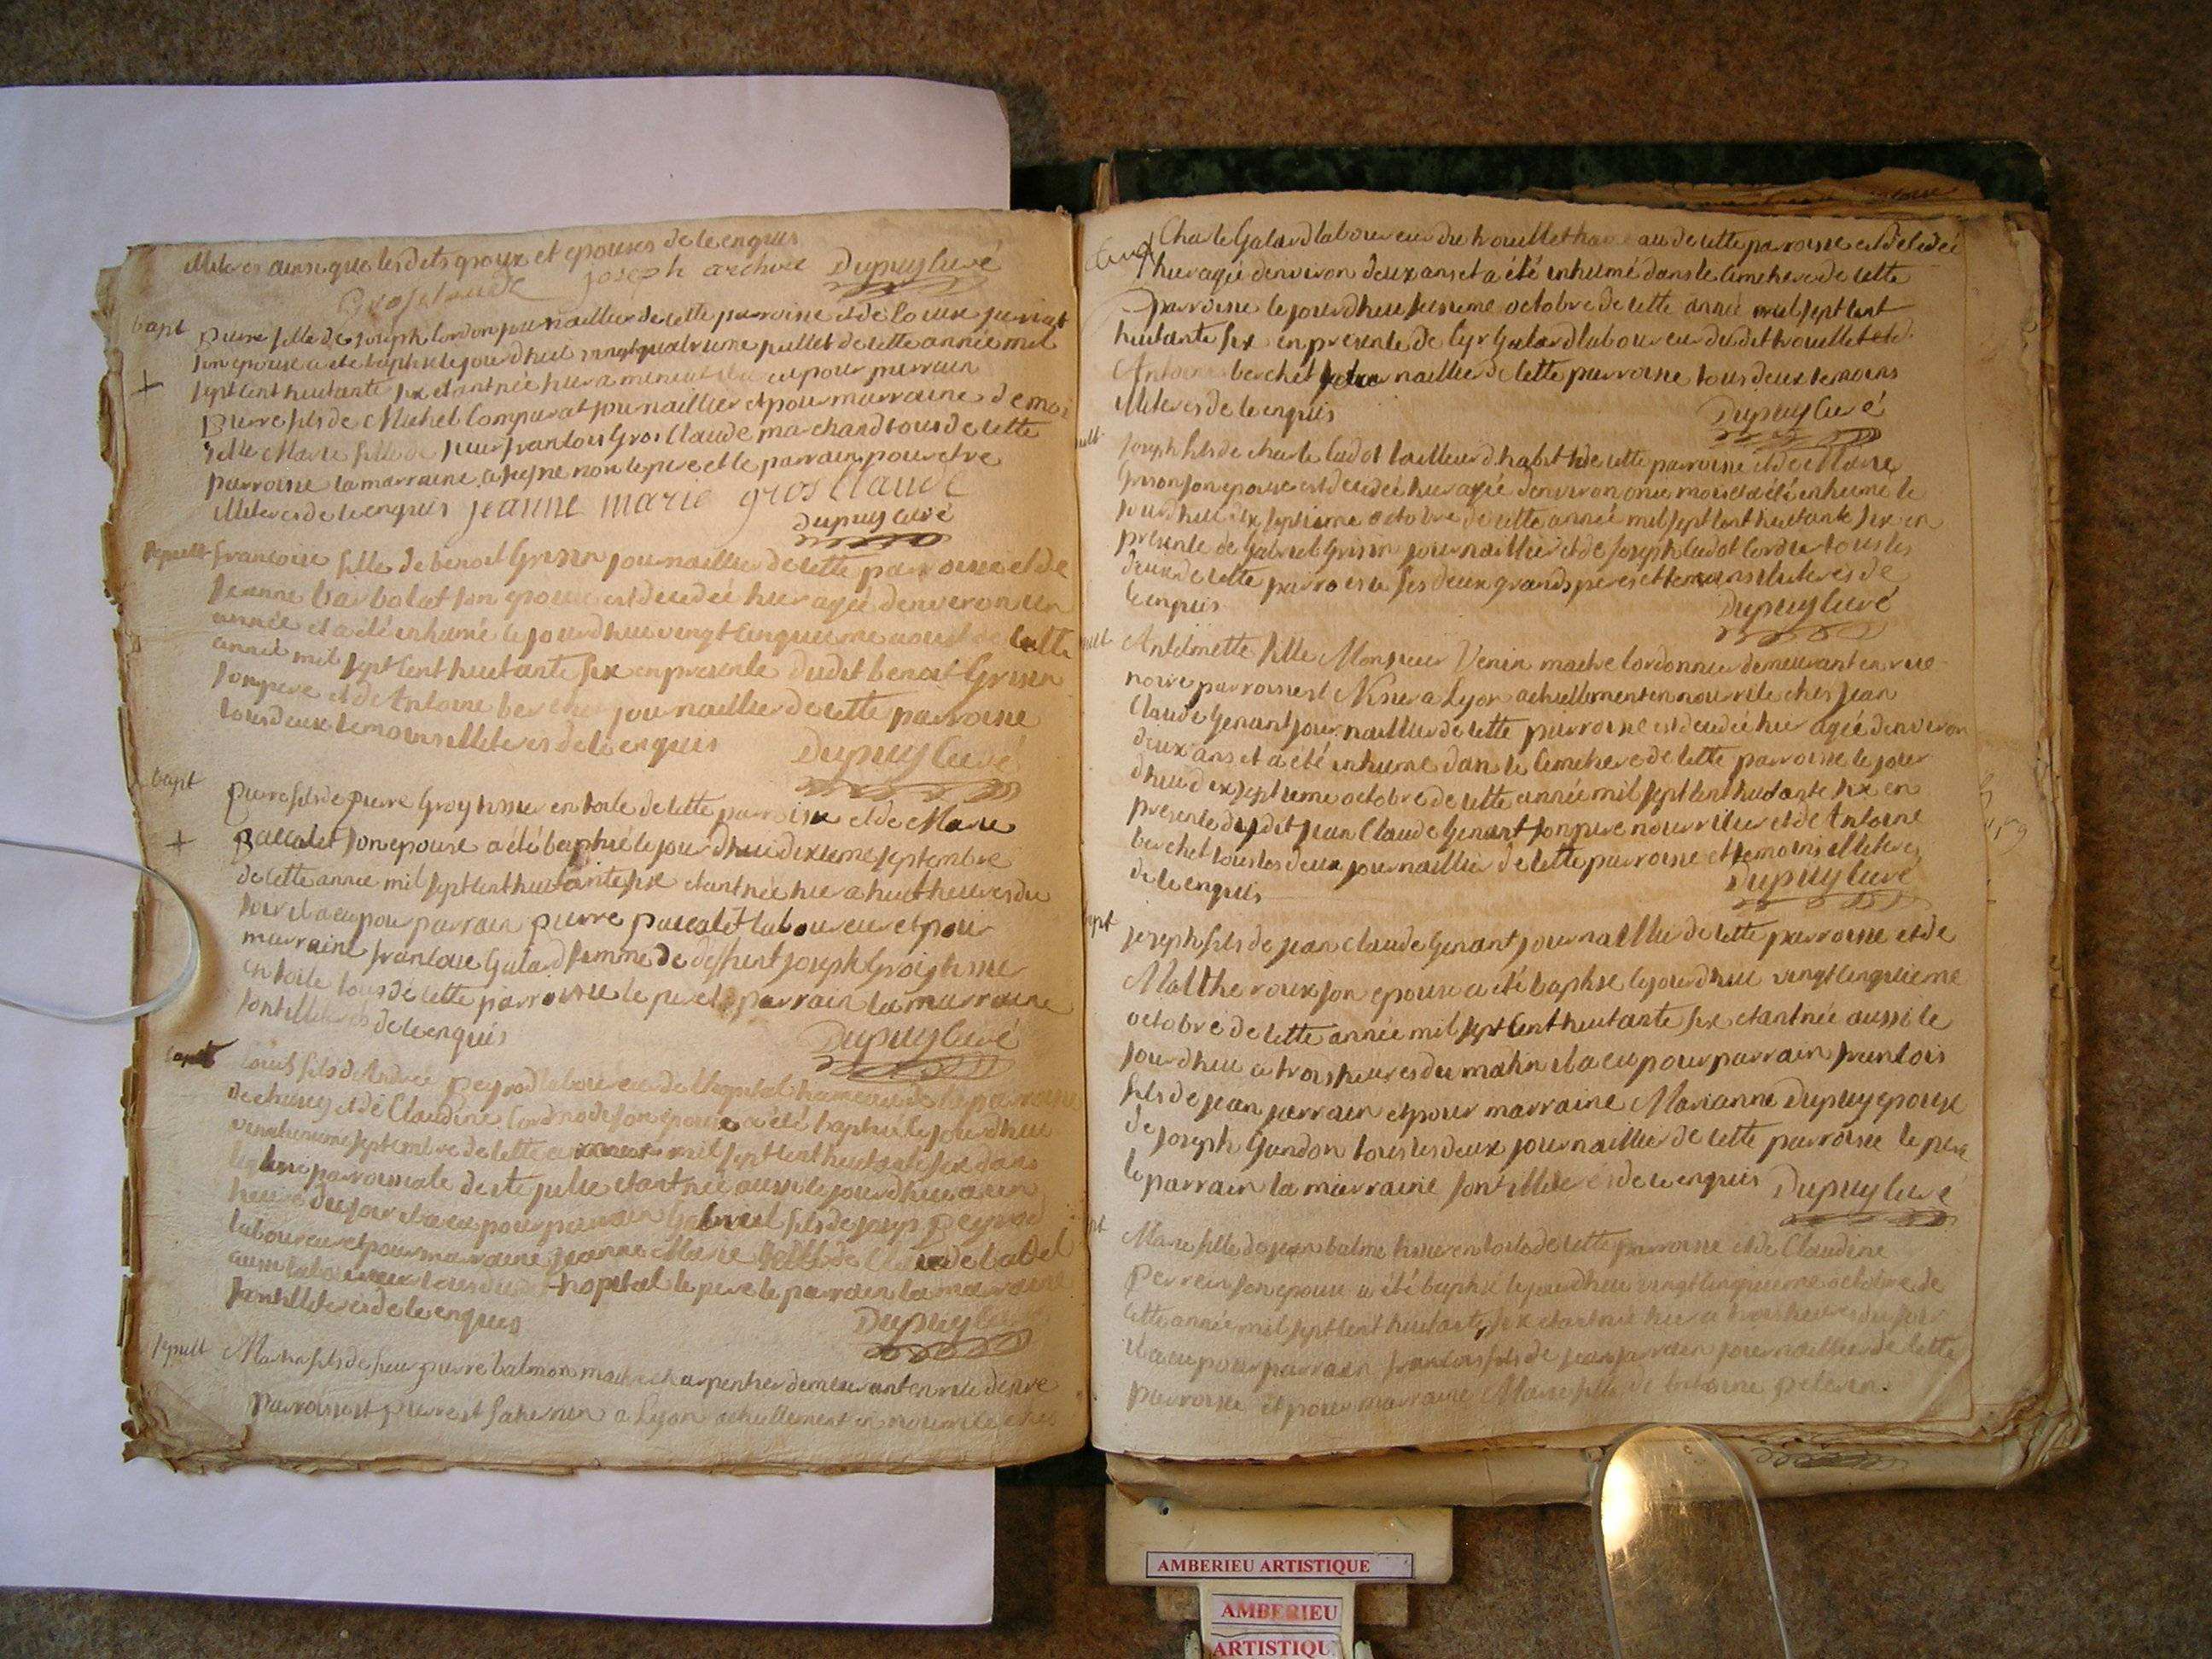 illiteres ainsi que lesdits groyx et epouses de ce enquis
joseph archire Dupuy curé
bapt
pierre fille de joseph cordon journaillier de cette parroisse et de
son epouse a eté baptisé le jourdhui vingt quatrieme juillet de cette année mil
sept cent huitante six etant née hier a a eu pour parrain
pierre fils de Michel Comparat journaillier et pour marraine demoi
selle Marie fille de sieur francois Gros Claude marchand tous de cette
parroisse la marraine a signé non le pere et le parrain pour etre
illiteres de ce enquis jeanne marie gros Claude
dupuy curé
sepult francoise fille de benoit Grisin journaillier de cette parroisse et de
Jeanne barbolat son epouse est decedeé hier ageé denviron un
année et a été inhumé le jourdhui vingt cinquieme aoust de cette
année mil sept cent huitante six en presence dudit benoit Grisin
son pere et de Antoine berchet journaillier de cette parroisse
tous deux temoins illiteres de ce enquis Dupuy Curé
bapt
pierre fils de pierre Groy tissier en toile de cette parroisse et de Marie
paccalet son epouse a été baptisé le jour dhui dixieme septembre
de cette année mil sept cent huitante six etant née hier a huit heures du
soir il a eu pour parrain pierre paccalet laboureur et pour
marraine francoise Galard femme de deffunt joseph Groy tissier
en toile tous de cette parroisse le pere le parrain la marraine
sont illiteres de ce enquis
Dupuy Curé
bapt
Louis fils de André Peyrod laboureur de lhopital hameau de la parroisse
de chasey et de Claudine son epouse a été baptisé le jour dhui
septembre de cette année mil sept cent huitante six dans
leglise parroissiale de ste julie etant née aussi le jourdhui a un
heure du soir il a eu pour parrain Gabriel fils de joseph Peyrod
laboureur et pour marraine jeanne Marie fille de Claude babel
aussi laboureur tous dudit hopital le pere le parrain la marraine
sont illiteres de ce enquis
Dupuy Curé
sepult Martin fils de sieur pierre balmon maitre charpentier demeurant en rue
parroisse st pierre st saturnin a Lyon actuellement en nourrice ches
Charle Galard laboureur du trouillet hameau de cette parroisse est décédeé
hier ageé denviron deux ans et a été inhumé dans le cimetiere de cette
parroisse le jourdhui seisieme octobre de cette année mil sept cent
huitante six en presence de Cyr Galard laboureur dudit trouillet et de
Antoine berchet journaillier de cette parroisse tous deux temoins
illiteres de ce enquis
Dupuy Curé
joseph fils de charle Cadot tailleur dhabit de cette parroisse et de Marie
Grison son epouse est decedeé hier ageé denviron onze mois et a été inhumé le
jourdhui dix septieme octobre de cette année mil sept cent huitante six en
presence de Gabriel Grisin journaillier et de joseph Cadot cordier tous les
deux de cette parroisse ses deux grands peres et temoins illiteres de
ce enquis
Dupuy Curé
Antelmette fille Monsieur Venin maitre cordonnier demeurant en rue
noire parroisse st Nisier a Lyon actuellement en nourrice ches jean
Claude Genant journaillier de cette parroisse est decedeé hier ageé denviron
deux ans et a été inhumé dans le cimetiere de cette parroisse le jour
dhui dix septieme octobre de cette année mil sept cent huitante six en
presence dudit jean Claude Genant son pere nourricier et de Antoine
berchet tous les deux journaillier de cette parroisse et temoins illiteres
de ce enquis
Dupuy Curé
joseph fils de jean claude Genant journaillier de cette parroisse et de
Malthe roux son epouse a été baptisé le jourdhui vingt cinquieme
octobre de cette année mil sept cent huitante six etant née aussi le
jour dhui a trois heures du matin il a eu pour parrain francois
fils de jean jarrain et pour marraine Marianne Dupuy epouse
de joseph Gandon tous les deux journaillier de cette parroisse le pere
le parrain la marraine sont illiteres de ce enquis Dupuy Curé
Marie fille de jean balme tissier en toile de cette parroisse et de Claudine
perrein son epouse a été baptisé le jourdhui vingt cinquieme octobre de
cette année mil sept cent huitante six etant née hier a trois heures du soir
il a eu pour parrain francois fils de jean jarrain journaillier de cette
parroisse et pour marraine Marie fille de Antoine pelerin
AMBERIEU ARTISTIQUE
AMBERIEU
ARTISTIQU